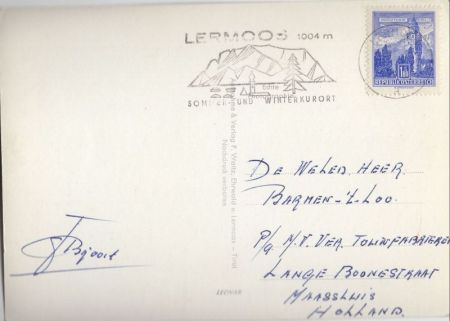 LERMOOS 1004 m
SOMMER- UND WINTERKURORT
REPUBLIK ÖSTERREICH
Echte
& Verlag F. Waltz, Ehrwald u. Lermoos – Tirol
Nachdruck verboten
DE WELED. HEER.
BARMEN-'T-LOO.
P/a N.V. VER. TOUWFABRIEKEN
LANGE BOONESTRAAT
MAASSLUIS
HOLLAND.